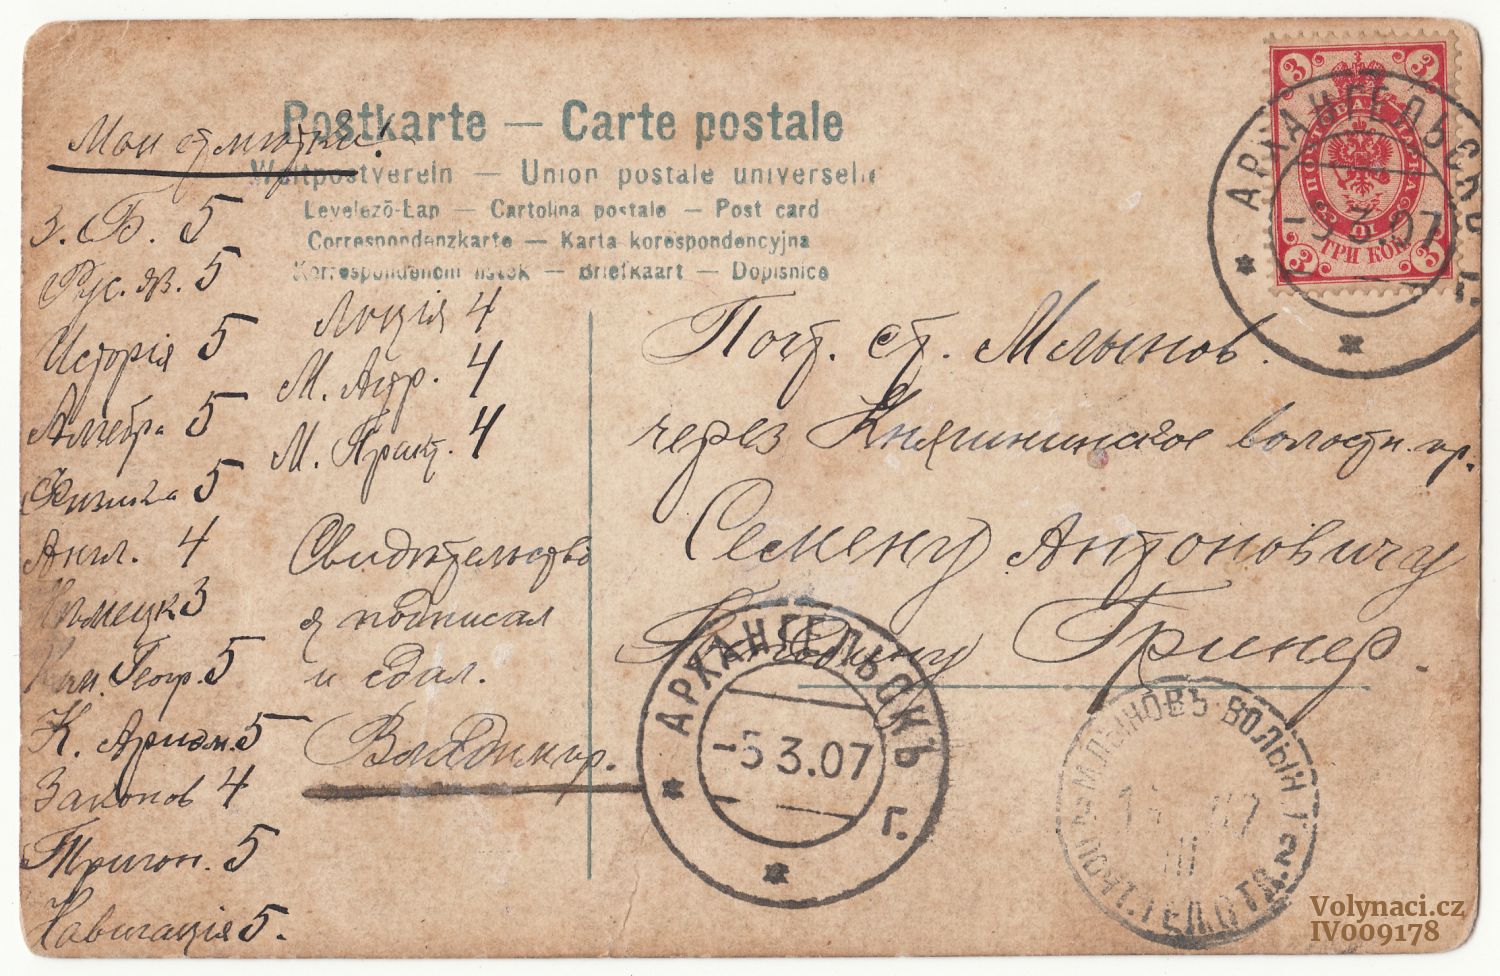 Postkarte — Carte postale
Weltpostverein — Union postale universelle
Levelező-Lap — Cartolina postale — Post card
Correspondenzkarte — Karta korespondencyjna
Korrespondencni listek — Briefkaart — Dopisnice
Мои отмѣтки!
З. Б. 5
Рус. яз. 5
Исторія 5
Алгебра 5
Физика 5
Англ. 4
Нѣмецк 3
Ком. Геогр. 5
К. Ариѳм. 5
Законов 4
Тригон. 5
Навигація 5.
Лоція 4
М. Астр. 4
М. Практ. 4
Свидѣтельство
я подписал
и сдал.
Владимир.
Почт. ст. Млынов.
через Княгининское волостн. пр.
Семену Антоновичу
Гринер.
3 3
ПОЧТОВАЯ МАРКА
ТРИ КОП.
3 3
АРХАНГЕЛЬСКЪ Г.
3.07
АРХАНГЕЛЬСКЪ Г.
-5 3.07
МЛЫНОВЪ ВОЛЫН. Г.
III
2
Volynaci.cz
IV009178